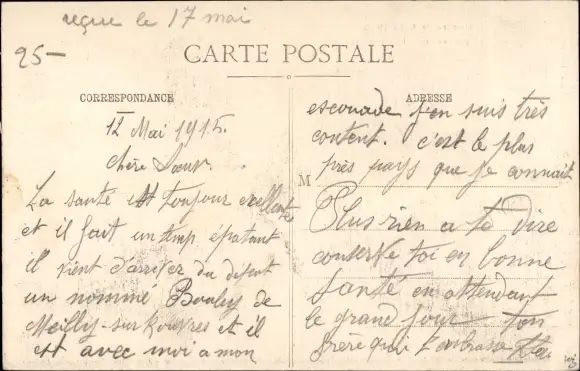 reçue le 17 mai
25-
CARTE POSTALE
CORRESPONDANCE
12 Mai 1915.
chère Sœur.
La santé est toujour exellente
et il fait un temp épatant
il vient d'arriver du dépot
un nommé de
Meilly-sur Rouvres et il
est avec moi a mon
ADRESSE
escouade j'en suis très
content. c'est le plus
près pays que je connait
M
Plus rien a te dire
conserve toi en bonne
Santé en attendant
le grand jour ton
frère qui t'embrasse